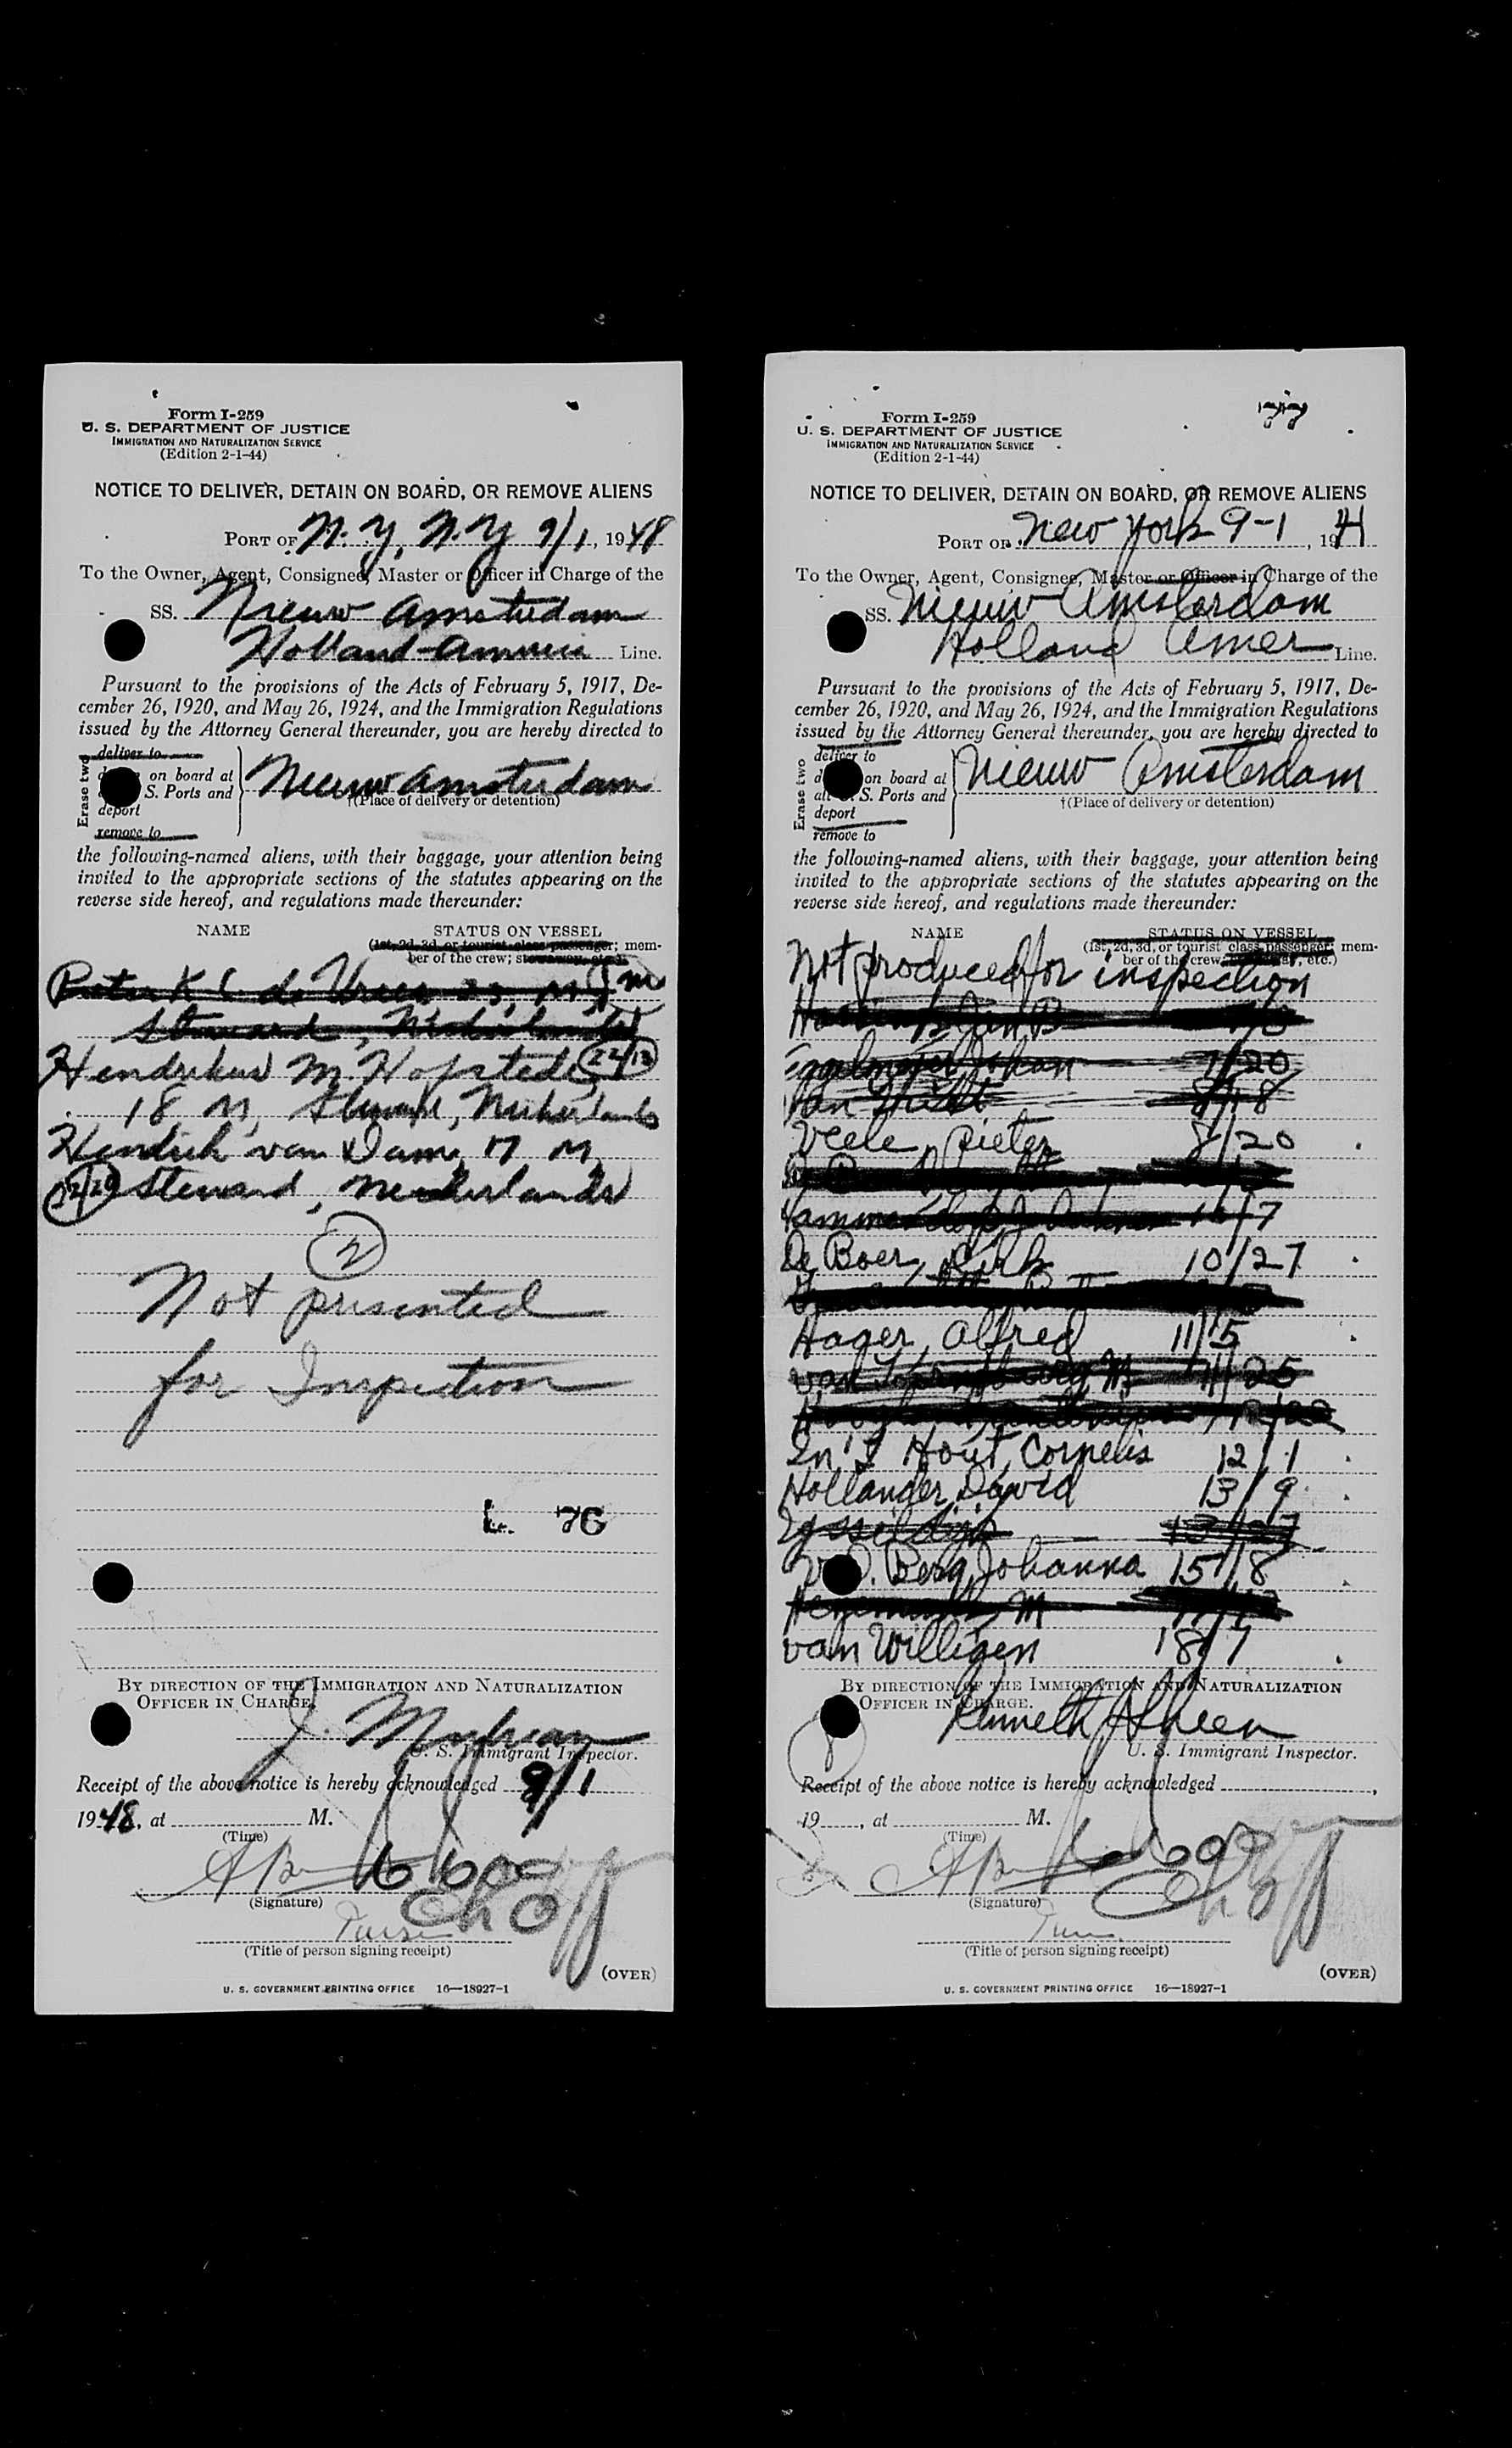 Form I-259
U. S. DEPARTMENT OF JUSTICE
IMMIGRATION AND NATURALIZATION SERVICE
(Edition 2-1-44)
NOTICE TO DELIVER, DETAIN ON BOARD, OR REMOVE ALIENS
PORT OF N.Y, N.Y 9/1, 1948
To the Owner, Agent, Consignee, Master or Officer in Charge of the
SS. Nieuw Amsterdam
Holland-America Line.
Pursuant to the provisions of the Acts of February 5, 1917, De-
cember 26, 1920, and May 26, 1924, and the Immigration Regulations
issued by the Attorney General thereunder, you are hereby directed to
Erase two
deliver to
on board at
S. Ports and
deport
remove to
Nieuw Amsterdam
†(Place of delivery or detention)
the following-named aliens, with their baggage, your attention being
invited to the appropriate sections of the statutes appearing on the
reverse side hereof, and regulations made thereunder:
NAME STATUS ON VESSEL
(1st, 2d, 3d, or tourist class passenger; mem-
ber of the crew; stowaway, etc.)
Steward, Netherlands
Hendrikus M. Hofstede 22/13
18 M, Steward, Netherlands
Hendrik van Dam, 17 M,
Steward, Netherlands
2
Not presented
for Inspection
76
BY DIRECTION OF THE IMMIGRATION AND NATURALIZATION
OFFICER IN CHARGE.
J.
U. S. Immigrant Inspector.
Receipt of the above notice is hereby acknowledged 9/1
1948, at M.
(Time)
(Signature)
Ch Off
Purser
(Title of person signing receipt)
(OVER)
U. S. GOVERNMENT PRINTING OFFICE 16—18927-1
Form I-259
U. S. DEPARTMENT OF JUSTICE
IMMIGRATION AND NATURALIZATION SERVICE
(Edition 2-1-44)
77
NOTICE TO DELIVER, DETAIN ON BOARD, OR REMOVE ALIENS
PORT OF New York 9-1, 19
To the Owner, Agent, Consignee, Master or Officer in Charge of the
SS. Nieuw Amsterdam
Holland Amer Line.
Pursuant to the provisions of the Acts of February 5, 1917, De-
cember 26, 1920, and May 26, 1924, and the Immigration Regulations
issued by the Attorney General thereunder, you are hereby directed to
Erase two
deliver to
on board at
S. Ports and
deport
remove to
Nieuw Amsterdam
†(Place of delivery or detention)
the following-named aliens, with their baggage, your attention being
invited to the appropriate sections of the statutes appearing on the
reverse side hereof, and regulations made thereunder:
NAME STATUS ON VESSEL
(1st, 2d, 3d, or tourist class passenger; mem-
ber of the crew; etc.)
Not produced for inspection
Johan 7/20
8/18
Veele, Pieter 8/20
De Boer, Dirk 10/27
Hager, Alfred 11/15
11/25
In't Hout, Cornelis 12/1
Hollander, David 13/9
v. D. Berg, Johanna 15/8
van Willigen 18/7
BY DIRECTION OF THE IMMIGRATION AND NATURALIZATION
OFFICER IN CHARGE.
Kenneth
U. S. Immigrant Inspector.
Receipt of the above notice is hereby acknowledged
19 , at M.
(Time)
(Signature)
Ch Off
(Title of person signing receipt)
(OVER)
U. S. GOVERNMENT PRINTING OFFICE 16—18927-1